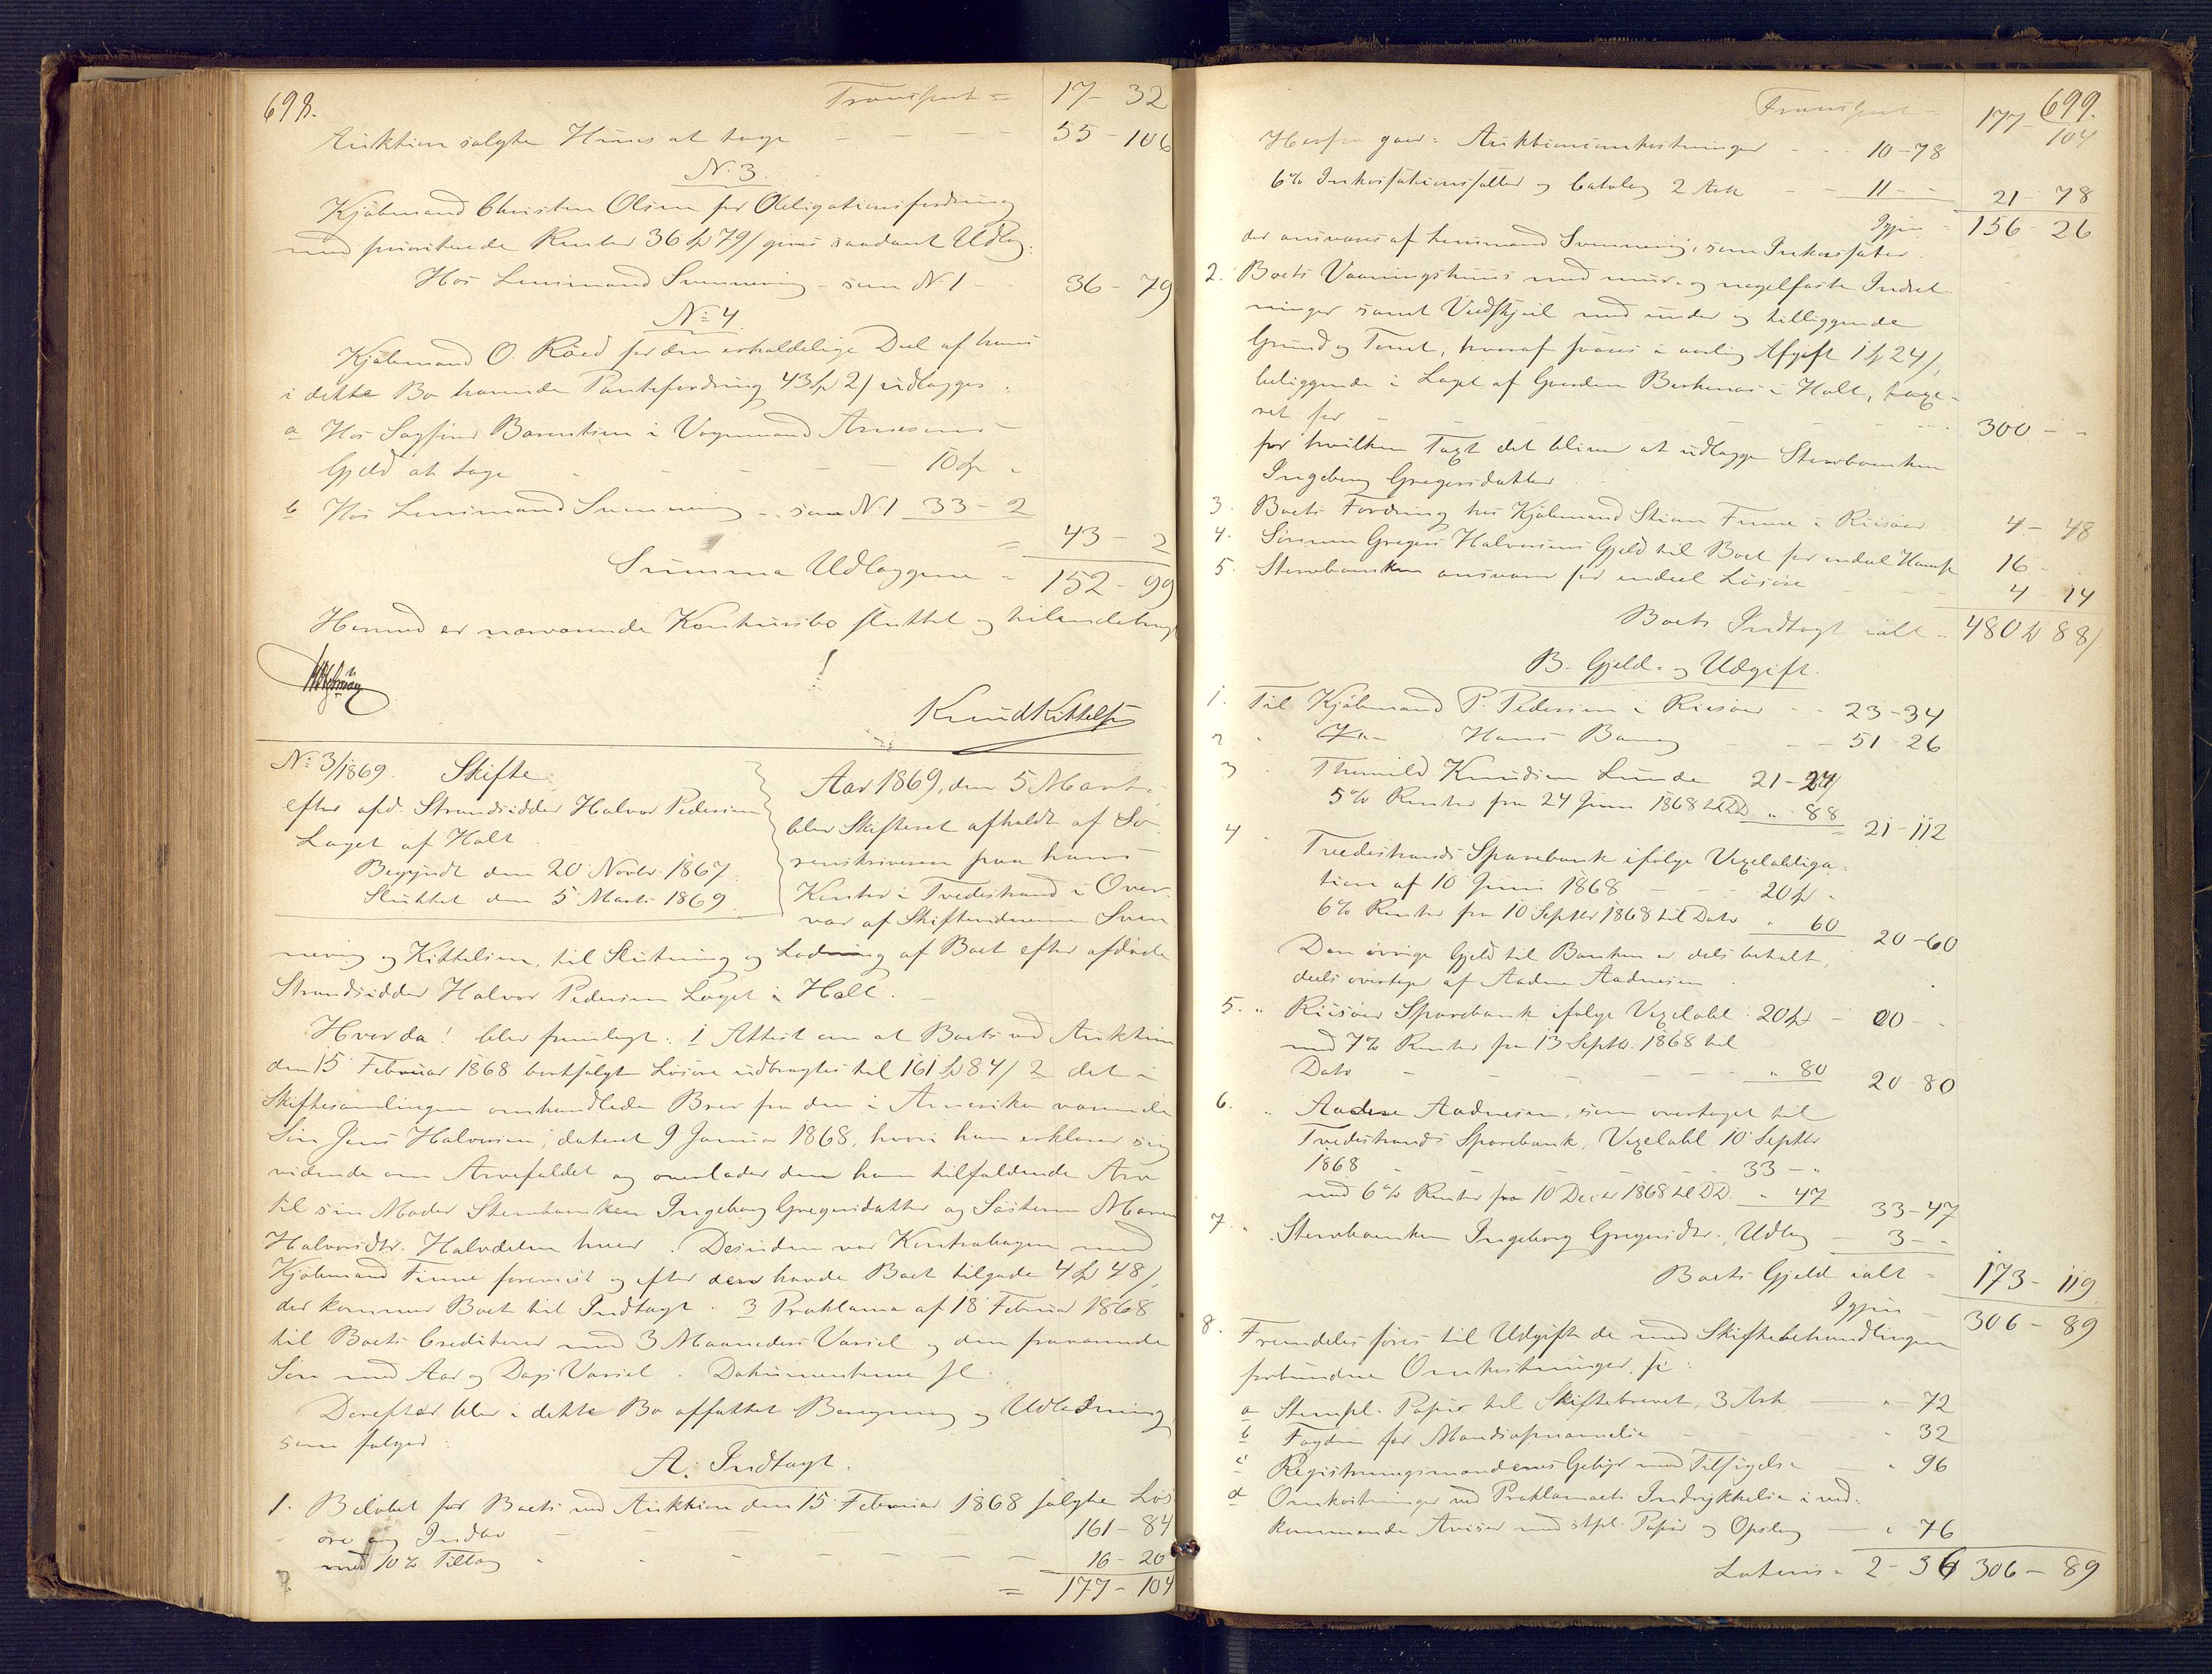 698.
Transport = 17- 32
Auktion solgte Huus at tage - - - - 55 - 106
N. 3.
Kjöbmand Christen Olsen for Obligationsfordring
med prioriterede Renter 36 Sp 79/ gives saadant Udlæg:
Hos Lensmand Svenning - som N. 1 - - 36 - 79
No 4.
Kjöbmand O. Röed for den erholdelige Deel af hans
i dette Bo havende Pantefordring 43 Sp 2/ udlægges:
a Hos Sagförer Barentsen i Vognmand Arnesens
Gjeld at tage - - - - - 10 Sp "
b Hos Lensmand Svenning - som N. 1 33 - 2
= 43 - 2
Summa Udlæggene = 152 - 99
Hermed er nærværende Konkursbo sluttet og tilendebragt
!
Knud Kittelsen
No 3/1869. Skifte
efter afd. Strandsidder Halvor Pedersen
Laget af Holt.
Begyndt den 20 Novbr. 1867.
Sluttet den 5 Marts 1869.
Aar 1869, den 5 Marts,
blev Skifteret afholdt af So-
renskriveren paa hans
Kontor i Tvedestrand i Over-
vær af Skiftevidnerne Sven
nevig og Kittelsen, til Slutning og Lodning af Boet efter afdöde
Strandsidder Halvor Pedersen Laget i Holt. -
Hvorda! blev fremlagt: 1 Attest om at Boets ved Auktion
den 15 Februar 1868 bortsolgte Lösöre udbragtes til 161 Sp 84/ 2 det i
Skiftesamlingen omhandlede Brev fra den i Amerika værende
Sön Jens Halvorsen, dateret 9 Januar 1868, hvori han erklærer sig
vidende om Arvefaldet og overlader den ham tilfaldende Arv
til sin Moder Stervboenken Ingeborg Gregersdatter og Söstern Maren
Halvorsdtr. Halvdelen hver. Desuden var Kontrabogen med
Kjöbmand Finne foreviist og efter den havde Boet tilgode 4 Sp 48/,
der kommer Boet til Indtægt. 3 Proklama af 18 Februar 1868
til Boets Creditorer med 3 Maaneders Varsel og den fraværende
Sön med Aar og Dags Varsel. Dokumenterne fl.
Derefter blev i dette Bo affattet Beregning og Udlodning
som fölger:
A. Indtægt.
1. Belöbet for Boets ved Auktion den 15 Februar 1868 solgte Lös
öre og Indbo - - 161 - 84
med 10% Tillæg - - - - - - 16 - 20
= 177 - 104
699.
Transport = 177 - 104
Herfra gaar: Auktionsomkostninger - - - 10 - 78
6% Inkassationssallær og Catalog 2 Ark - - 11 - - 21 - 78
Igjen - 156 - 26
der ansvares af Lensmand Svennevig, som Inkassator.
2. Boets Vaaningshuus med muur- og nagelfaste Indret-
ninger samt Vedskjul med under og tilliggende
Grund og Tomt, hvoraf svares i aarlig Afgift 1 Sp 24/,
beliggende i Laget af Gaarden Berkenæs i Holt, taxe-
ret for - - - - - - - 300 - -
for hvilken Taxt det bliver at udlægge Stervboenken
Ingeborg Gregersdatter.
3. Boets Fordring hos Kjöbmand Stian Finne i Riisöer 4 - 48
4. Sönnen Gregers Halvorsens Gjeld til Boet for endeel Hamp 16 -
5. Stervboenken ansvarer for endeel Lösöre - - - 4 - 14
Boets Indtægt ialt = 480 Sp 88/
B. Gjeld- og Udgift.
1. Til Kjöbmand P. Pedersen i Riisöer - - 23 - 34
2 " Hans Bang - - - 51 - 26
3 " Thorvild Knudsen Lunde 21 - 24
5% Renter fra 24 Juni 1868 til DD " 88
= 21 - 112
4 - Tvedestrands Sparebank ifölge Vexelobliga-
tion af 10 Juni 1868 - - - 20 Sp "
6% Renter fra 10 Septbr 1868 til Dato " 60
20 - 60
Den övrige Gjeld til Banken er dels betalt,
deels overtaget af Aadne Aadnesen.
5. " Riisöer Sparebank ifölge Vexelobl. 20 Sp - 20 - -
med 7% Renter fra 13 Septbr. 1868 til
Dato - - - - - - " 80
20 - 80
6. " Aadne Aadnesen, som overtaget til
Tvedestrands Sparebank, Vexelobl. 10 Septbr
1868 - - - - - - 33 - "
med 6% Renter fra 10 Decbr 1868 til DD. " 47
33 - 47
7. " Stervboenken Ingeborg Gregersdtr., Udlæg - 3 - -
Boets Gjeld ialt = 173 - 119
Igjen - 306 - 89
8. Fremdeles föres til Udgift de med Skiftebehandlingen
forbundne Omkostninger, s:
a Stempl. Papir til Skiftebrevet, 3 Ark - " - 72
b Fogden for Mandsopnævnelse - - " 32
c Registreringsmændenes Gebyr med Tilsigelse - " 96
d Omkostninger ved Proklamaets Indrykkelse i ved-
kommende Aviser med stpl. Papir og Opslag - " 76
Lateris = 2 - 36 306 - 89